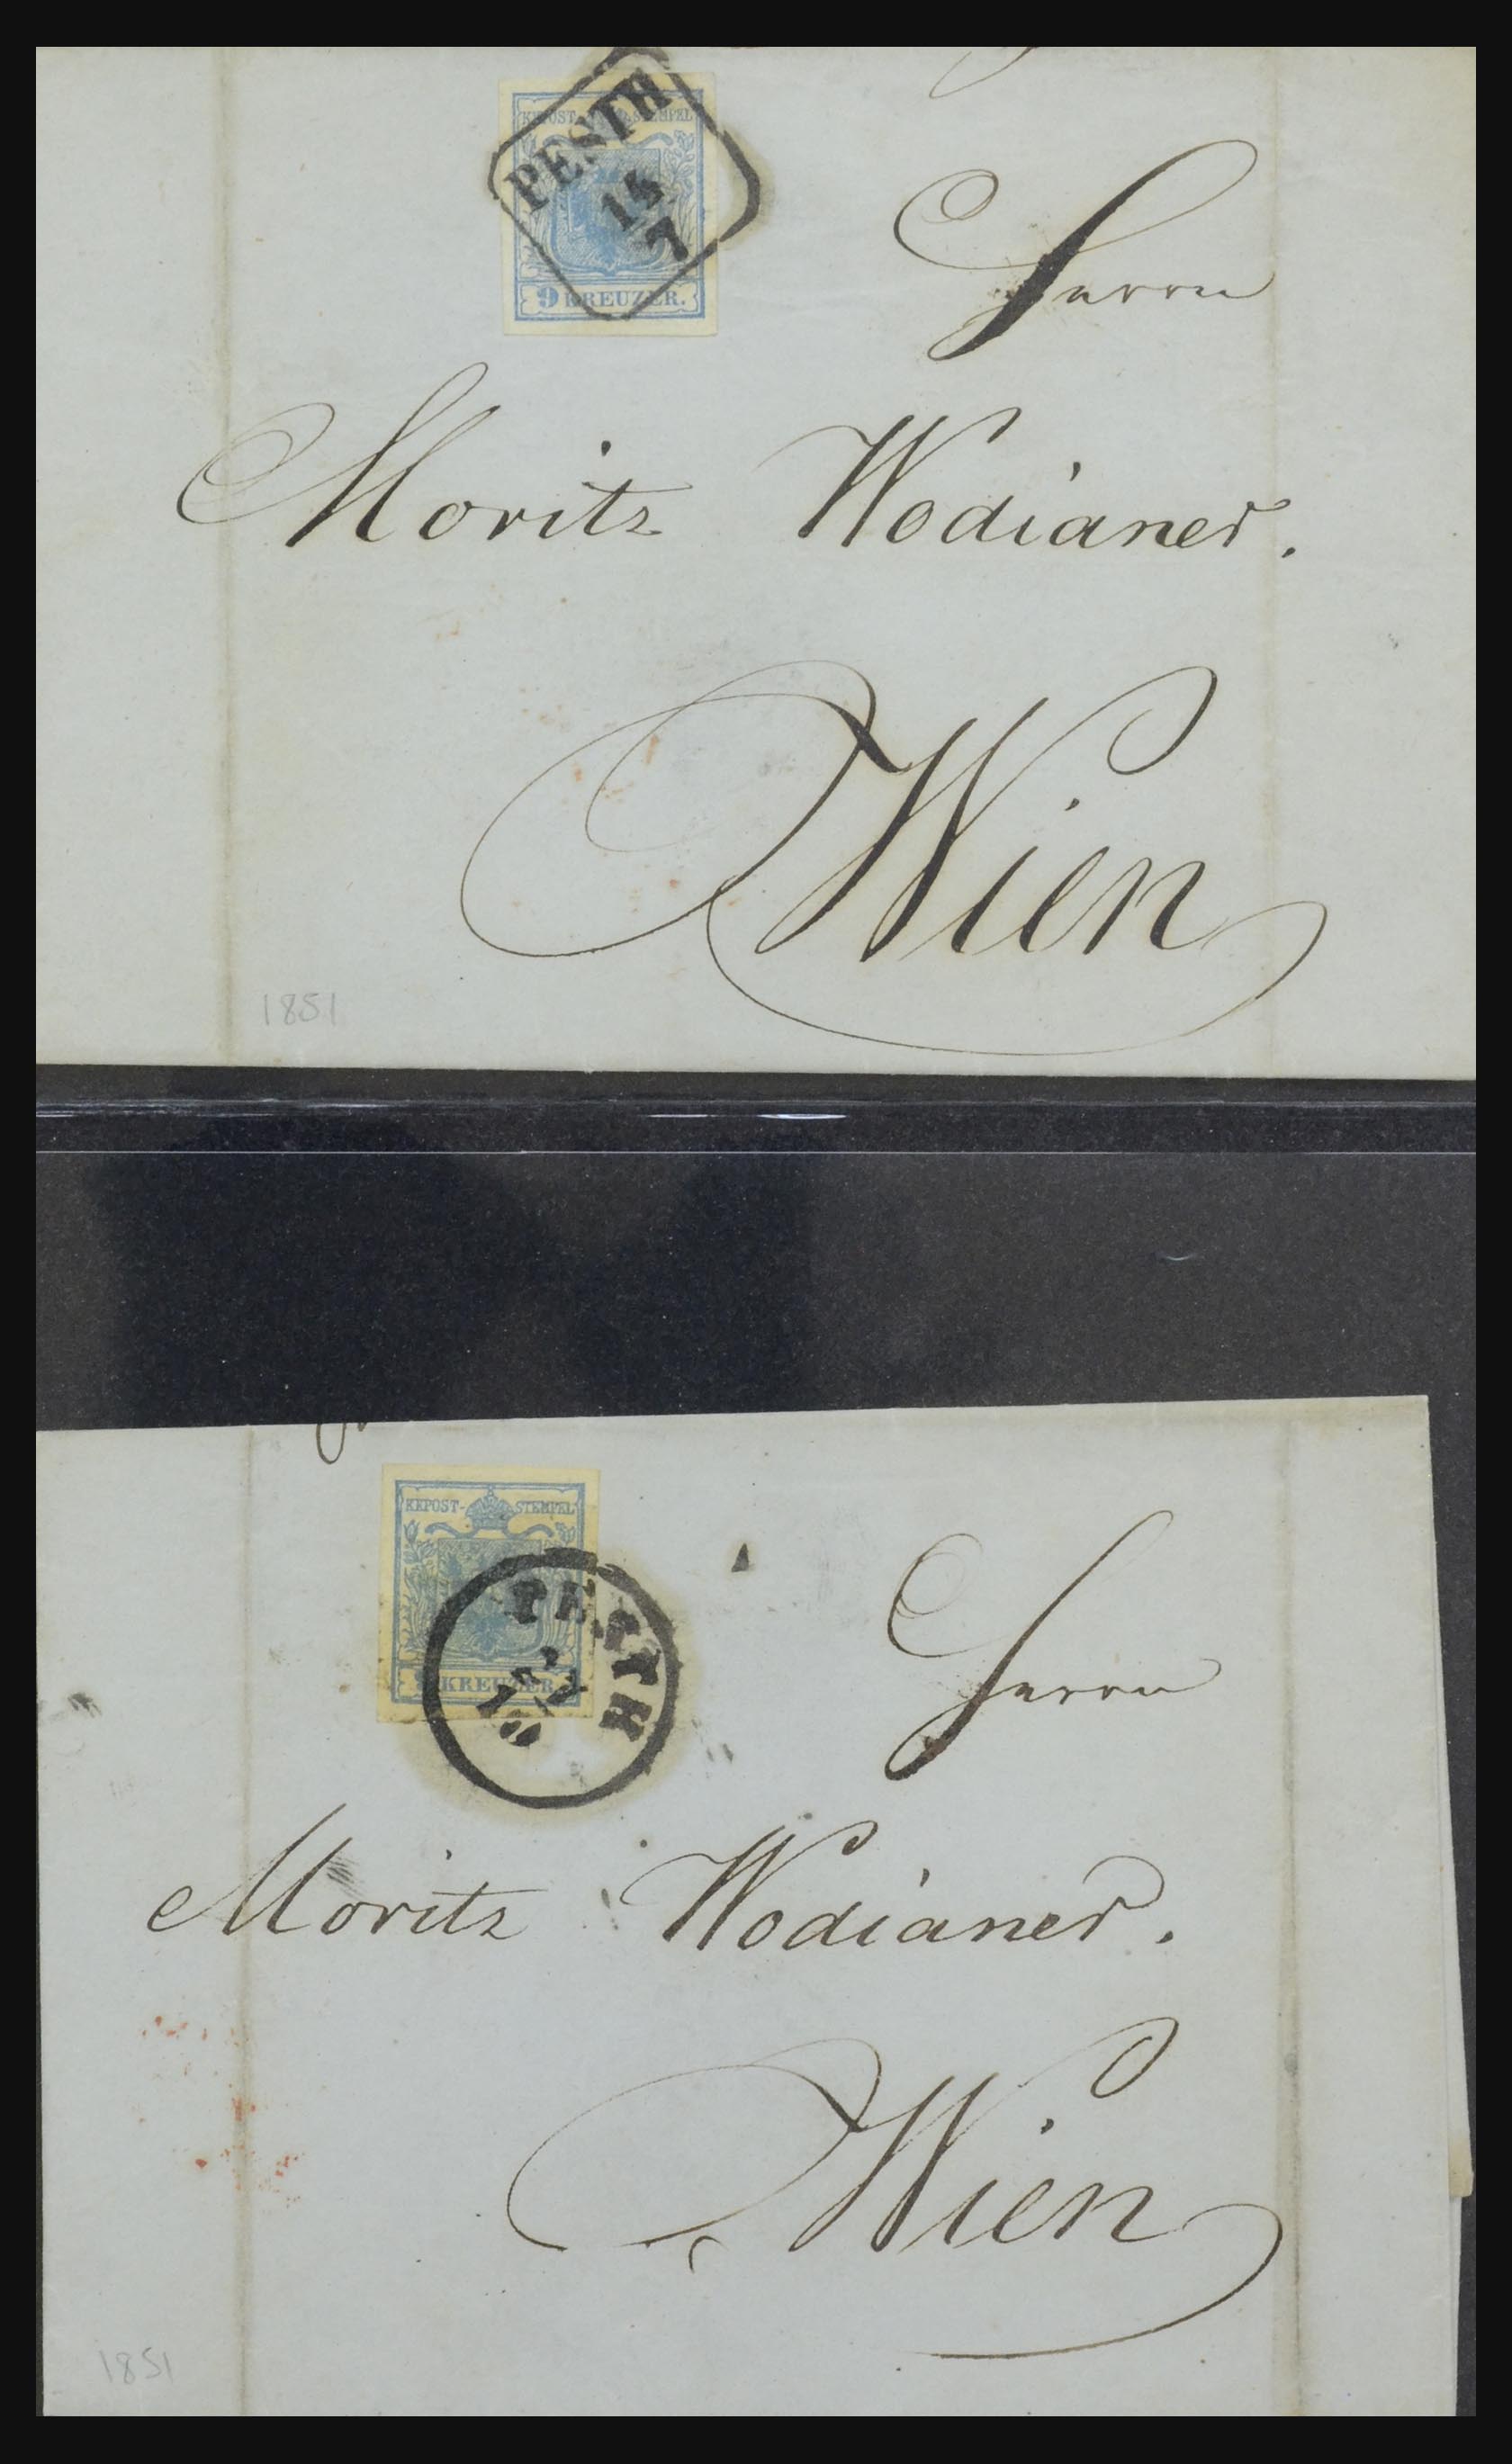 KKPOST-STEMPEL
PESTH
14
7
9 KREUZER.
Herrn
Moritz Wodianer.
Wien
1851
KKPOST-STEMPEL
PESTH
KREUZER.
Herrn
Moritz Wodianer.
Wien
1851